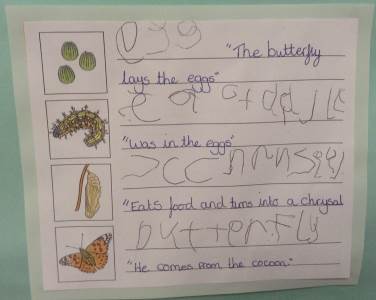 egg
"The butterfly
lays the eggs"
"Was in the eggs"
"Eats food and turns into a chrysal
butterFly
"He comes from the cocoon."